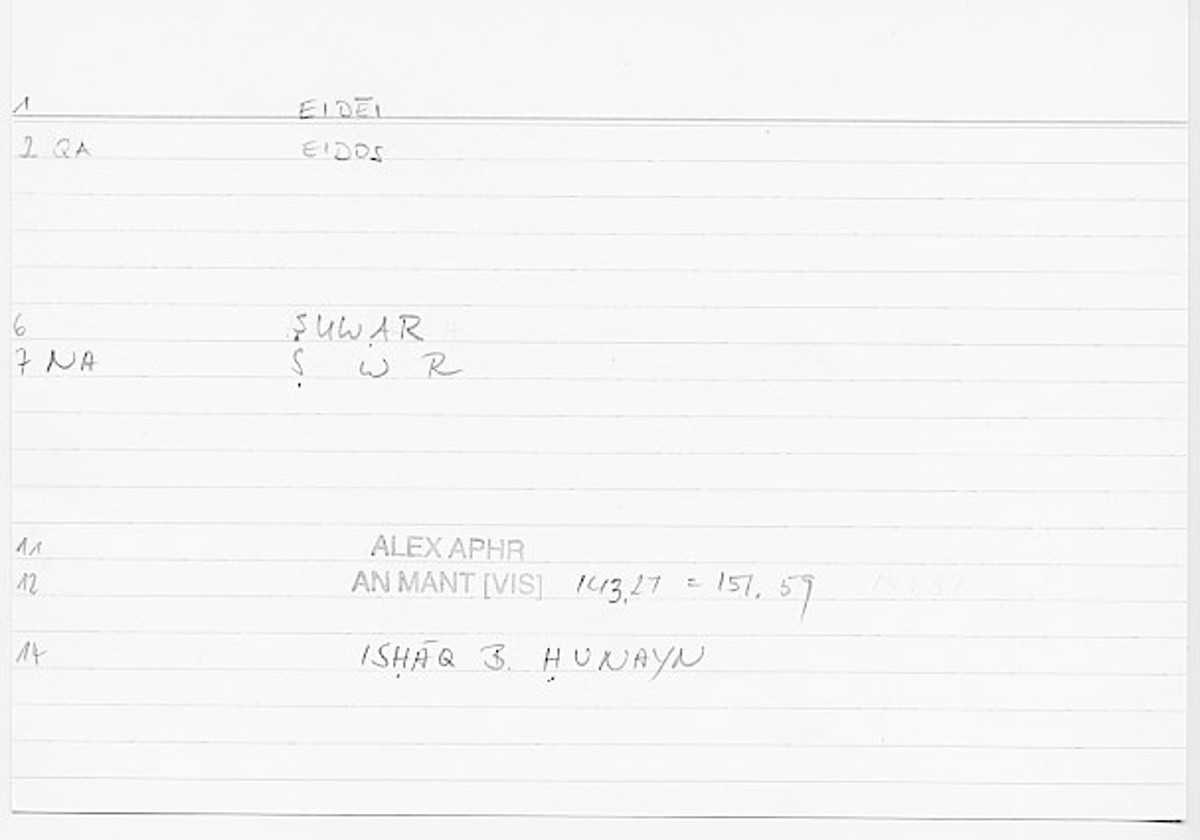 1 EIDĒI
2 QA EIDOS
6 ṢUWAR
7 NA Ṣ W R
11 ALEX APHR
12 AN MANT [VIS] 143,27 = 151.59
14 ISḤĀQ B. ḤUNAYN